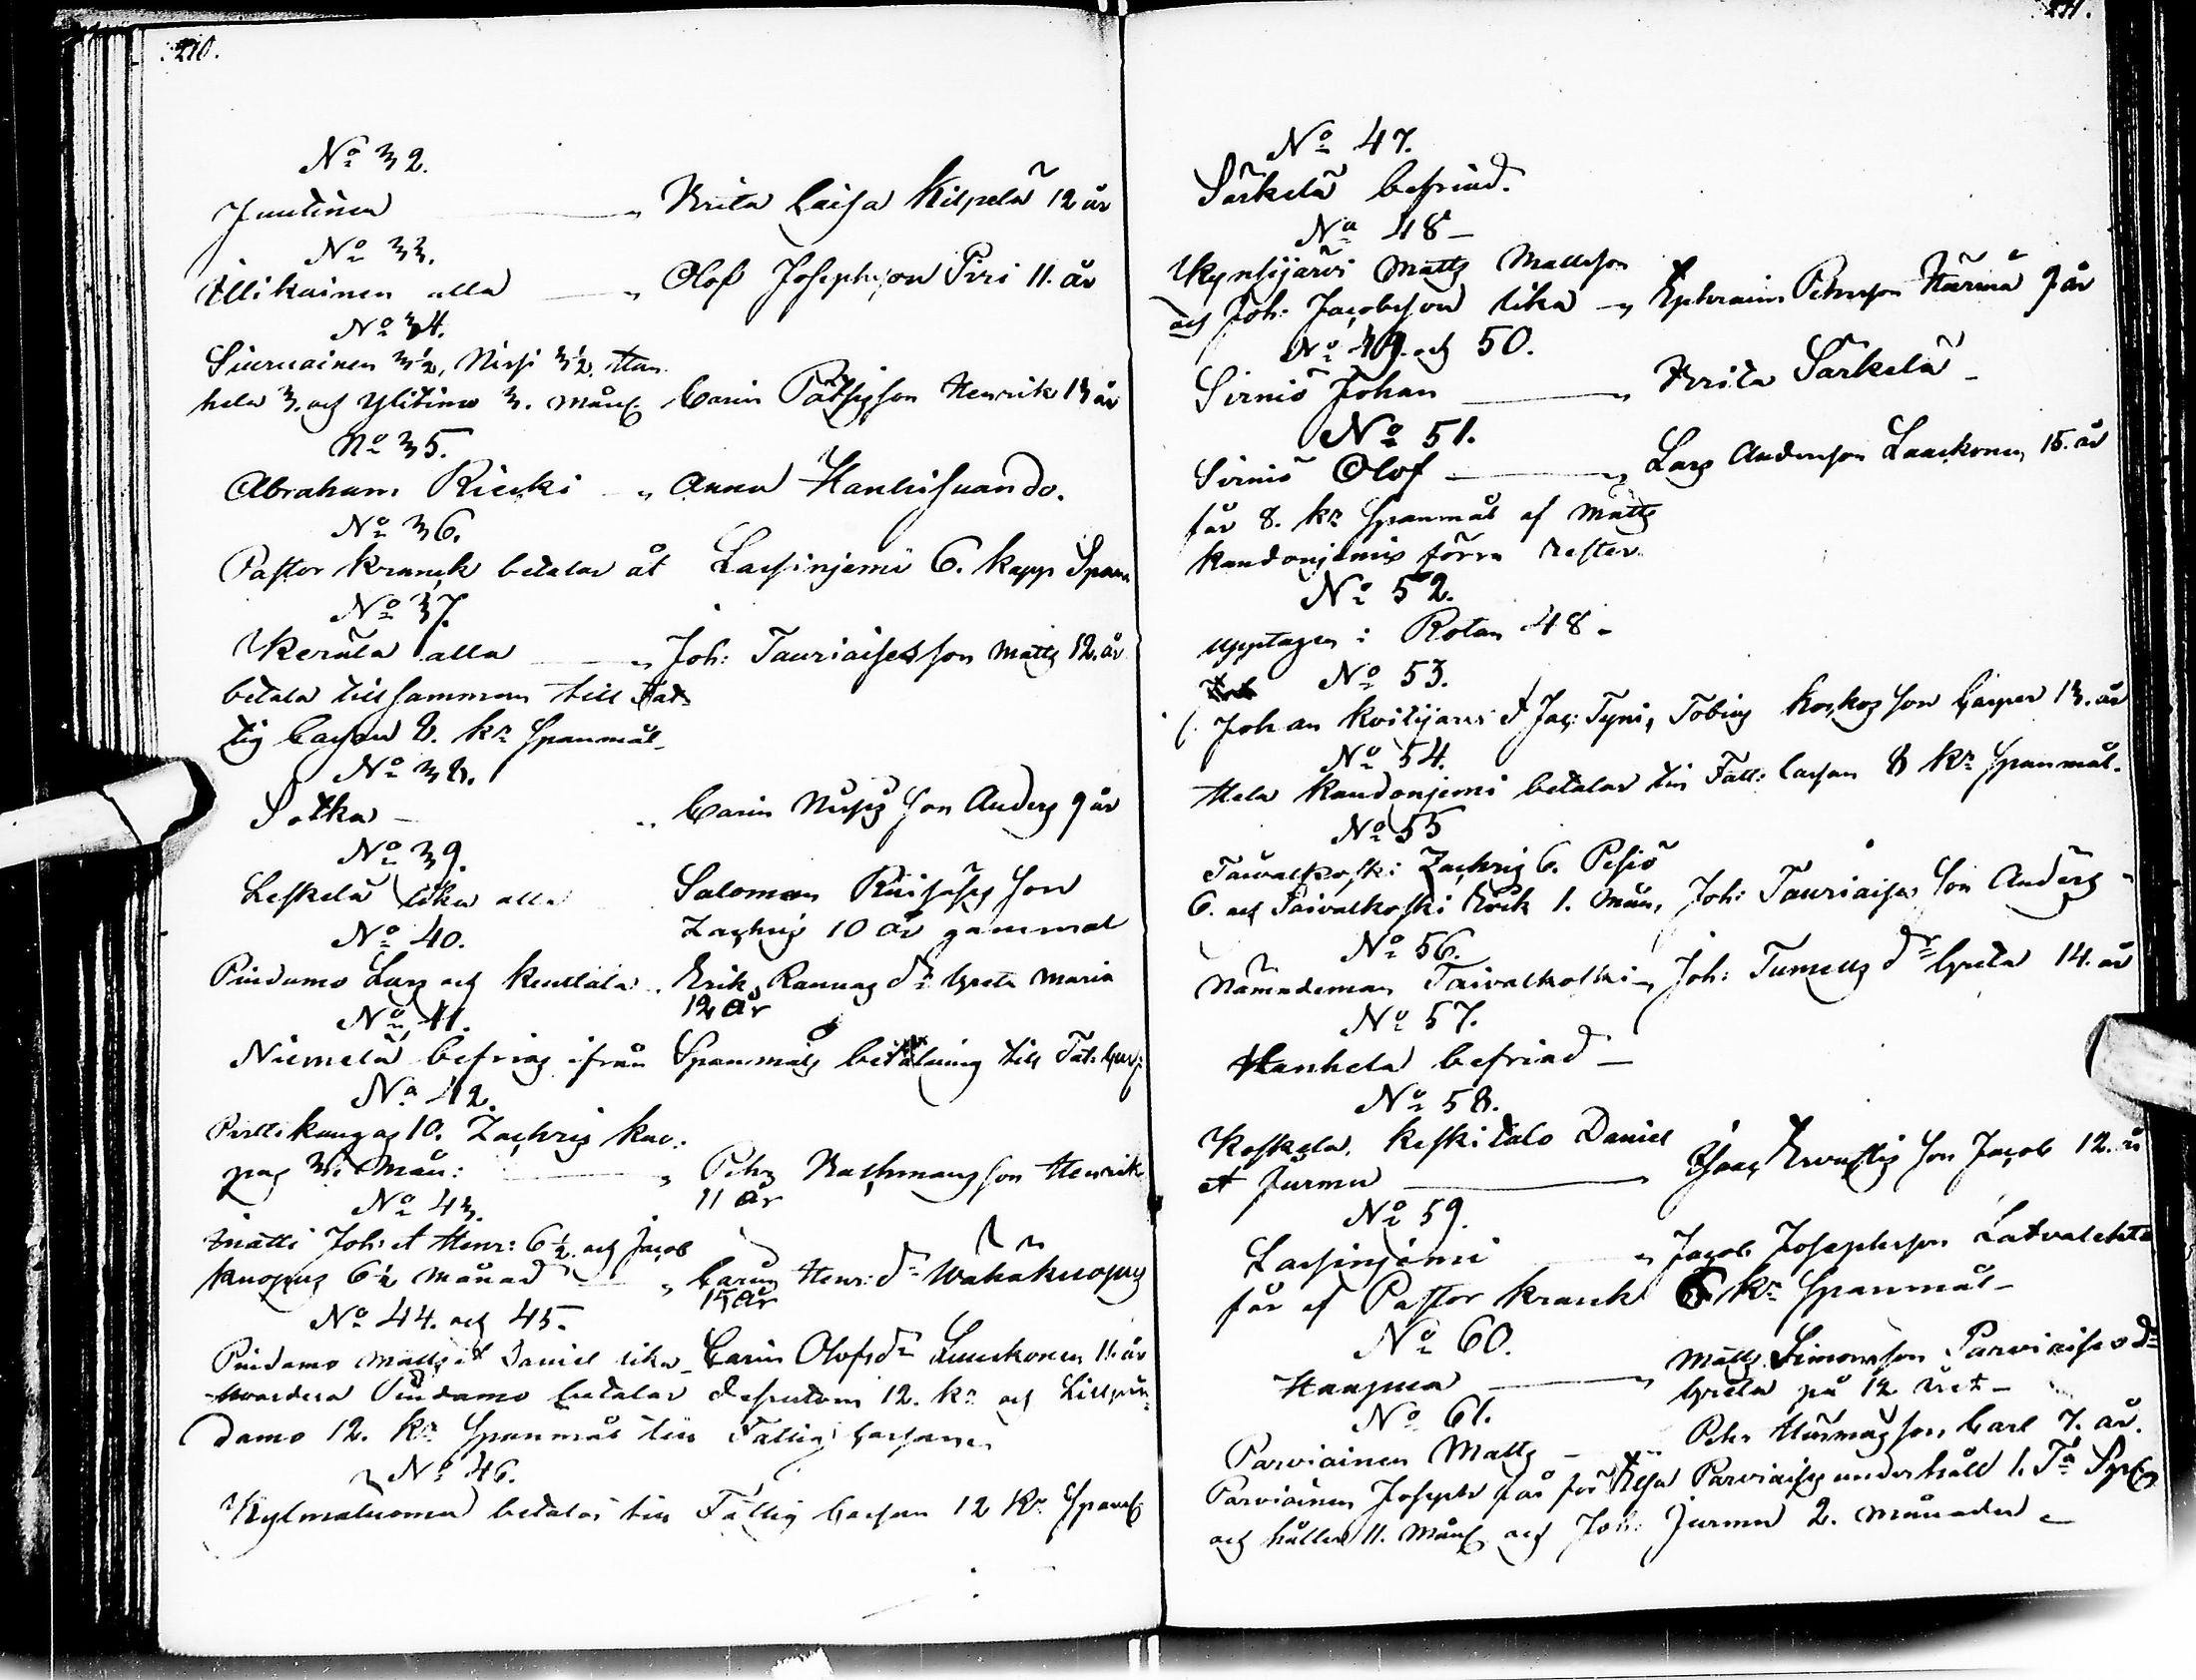 210.
No 32.
Juutinen " Brita Caisa Kilpelä 12 år
No 33.
Illikainen alla " Olof Josephson Piri 11. år
No 34.
Siurnainen 3½, Nissi 3½, Han
hela 3. och Ylitimo 3. Mån Carin Pätsis son Henrik 13 år
No 35.
Abraham Rieski " Anna Hanhisuando.
No 36.
Pastor Kranck betalar åt Lassinjemi 6. kapp Spanm
No 37.
Kerälä alla " Joh: Tauriaises son Matts 12. år
betala tillsamman till Fat-
tig Cassan 8. kr Spanmål
No 38.
Sotka " Carin Nissis son Anders 9 år
No 39.
Leskelä lika alla Salomon Riisasis son
Zachris 10 år gammal
No 40.
Pindamo Lars och Kenttälä Erik Rannas dr Greta Maria
12 år
No 41.
Niemelä befrias ifrån Spanmåls betalning till Fat: Cass:
No 42.
Perttikangas 10. Zachris Kar:
pas 3. Mån: " Pehr Bachmans son Henrik
11 år
No 43.
Mätti Joh: et Henr: 6½ och Jacob
Knoppus 6½ månad " Carin Henr: dr Wähäkuopus
15 år
No 44. och 45.
Pindamo Matts et Daniel lika Carin Olofsdr Luuskonen 11. år
hvardera Pindamo betalar dessutom 12. kr och Lillpin-
damo 12. kr Spanmål till Fattig Cassan
No 46.
Kylmaluoma betalar till Fattig Cassan 12 kr Spanm
211.
No 47.
Särkelä befriad.
No 48
Kynsijärvi Matts Mattsson
och Joh: Jacobsson lika " Ephraim Pehrsson Härmä 9 år
No 49. och 50.
Sirniö Johan " Brita Särkelä
No 51.
Sirniö Olof " Lars Andersson Laackonen 15. år
får 8. kr Spanmål af Matts
Kandonjemis förra rester
No 52.
upptagen i Rotan 48
No 53.
Johan Koitijärvi et Jac: Tyni, Tobias Koskos son Casper 13. år
No 54.
Hela Kandonjemi betalar till Fatt: Cassan 8 kr Spanmål.
No 55
Taivalkoski Zachris 6. Pesiö
6. och Taivalkoski Erik 1. Mån, Joh: Tauriaises Son Anders
No 56.
Nämndeman Taivalkoski " Joh: Tumells dr Greta 14. år
No 57.
Hanhela befriad
No 58.
Koskela, Keskitalo Daniel
et Jurmu " Isaac Ervastis Son Jacob 12. år
No 59.
Lassinjemi " Jacob Josephsson Latvalehto
får af Pastor Kranck 6 kr Spanmål
No 60.
Haapua " Matts Simonsson Parviaises dr
Greta på 12 året
No 61.
Parviainen Matts " Pehr Härmas son Carl 7. år.
Parviainen Joseph får för Elsa Parviaises underhåll 1. Ta
och håller 11. Mån och Joh: Jurmu 2. månader